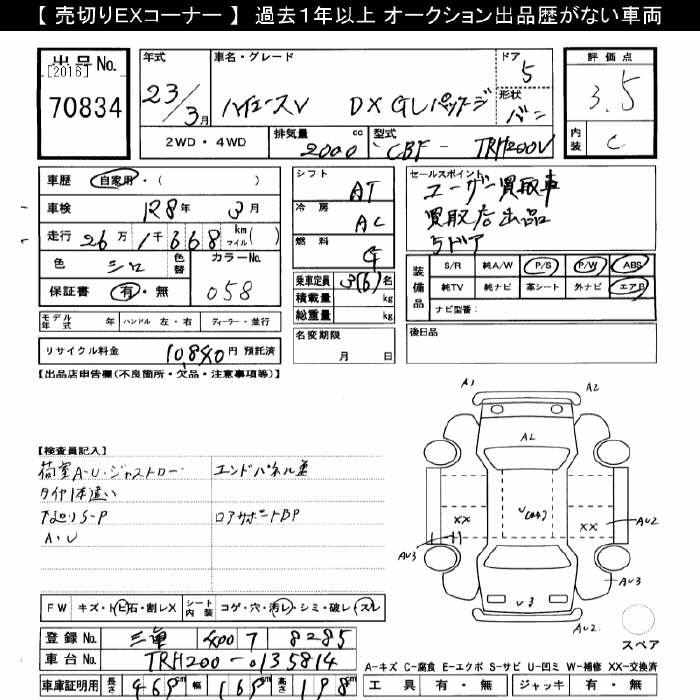 【 売切りEXコーナー 】 過去1年以上 オークション出品歴がない車両
出品No. [2016] 70834
年式 23/3月
車名・グレード ハイエースV DX GLパッケージ
ドア 5
形状 バン
2WD・4WD
排気量 2000 cc
型式 CBF - TRH200V
評価点 3.5
内装 C
車歴 自家用・( )
車検 H28年 3月
走行 26万1千668 km マイル( )
色 シロ 色替 カラーNo. 058
保証書 有・無
モデル年式 年 ハンドル 左・右 ディーラー・並行
リサイクル料金 10,880円 預託済
シフト AT
冷房 AC
燃料 G
乗車定員 3(6)名
積載量 kg
総重量 kg
名変期限 月 日
セールスポイント
ユーザー買取車
買取店出品
5ドア
装備品 S/R 純A/W P/S P/W ABS
純TV 純ナビ 革シート 外ナビ エアB
ナビ型番:
後日品
【出品店申告欄(不良箇所・欠品・注意事項等)】
【検査員記入】
荷室A・U・ジャストロー エンドパネル
タイヤ1本違い
下廻りS-P ロアサポートBP
A・U
A1 A2
AL
XX XX
AU2
AU3 AU3
U3
AU2
スペア
FW キズ・トビ石・割レX
シート内装 コゲ・穴・汚レ・シミ・破レ・スレ
登録No. 三重 400 フ 8285
車台No. TRH200-0135814
車庫証明用 長さ 469cm 幅 169cm 高さ 198cm
A-キズ C-腐食 E-エクボ S-サビ U-凹ミ W-補修 XX-交換済
工具 有・無 ジャッキ 有・無